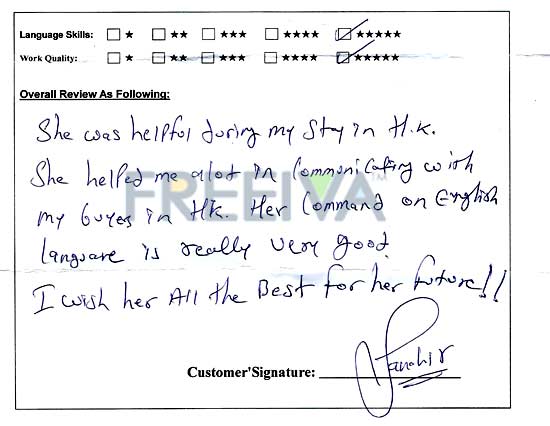 Language Skills: ☐ ★ ☐ ★★ ☐ ★★★ ☐ ★★★★ ☑ ★★★★★
Work Quality: ☐ ★ ☐ ★★ ☐ ★★★ ☐ ★★★★ ☑ ★★★★★
Overall Review As Following:
She was helpful during my stay in H.K.
She helped me alot in Communicating with
FREEIVA
my buyes in HK. Her Command on English
languare is really very good.
I wish her All the Best for her future!!
Customer'Signature: